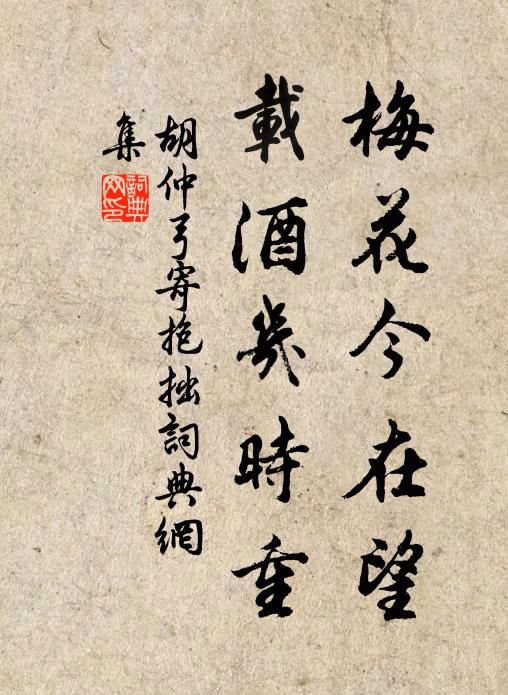 梅花今在望
載酒幾時重
胡仲弓寄抱拙詞典網
集
詞典網印